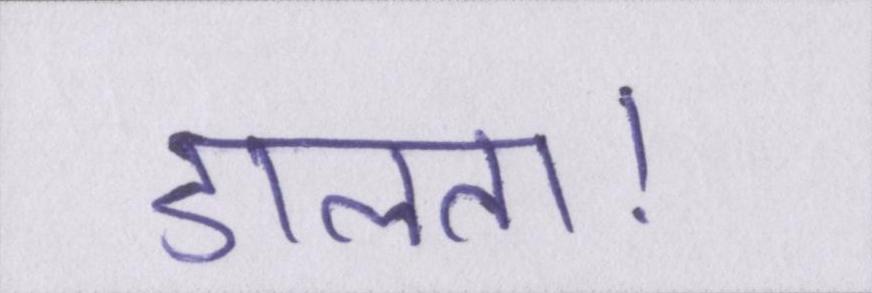 डालता!